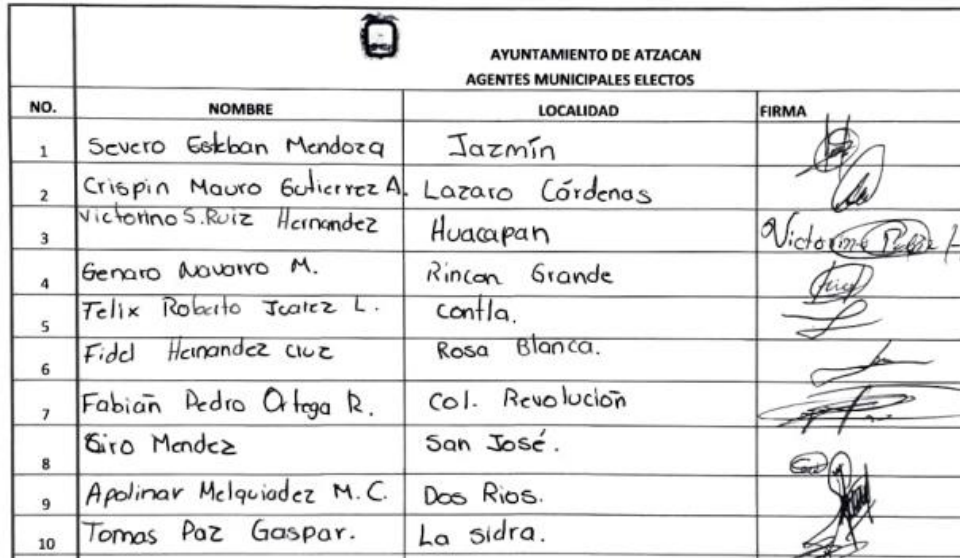 AYUNTAMIENTO DE ATZACAN
AGENTES MUNICIPALES ELECTOS
NO. NOMBRE LOCALIDAD FIRMA
1 Severo Esteban Mendoza Jazmín
2 Crispin Mauro Gutierrez A. Lazaro Córdenas
3 Victorino S. Ruiz Hernandez Huacapan Victorino
4 Genaro Navarro M. Rincon Grande
5 Felix Roberto Juarez L. Contla.
6 Fidel Hernandez Cruz Rosa Blanca.
7 Fabián Pedro Ortega R. Col. Revolución
8 Siro Mendez San José.
9 Apolinar Melquiadez M. C. Dos Rios.
10 Tomas Paz Gaspar. La sidra.